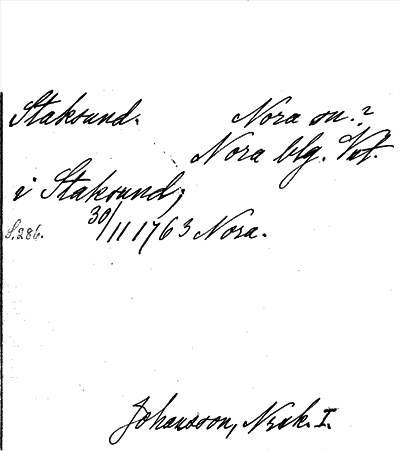 Staksund. Nora sn.?
Nora blg. Vstl.
i Staksund,
S. 286. 30/11 1763 Nora.
Johansson, Norask. I.